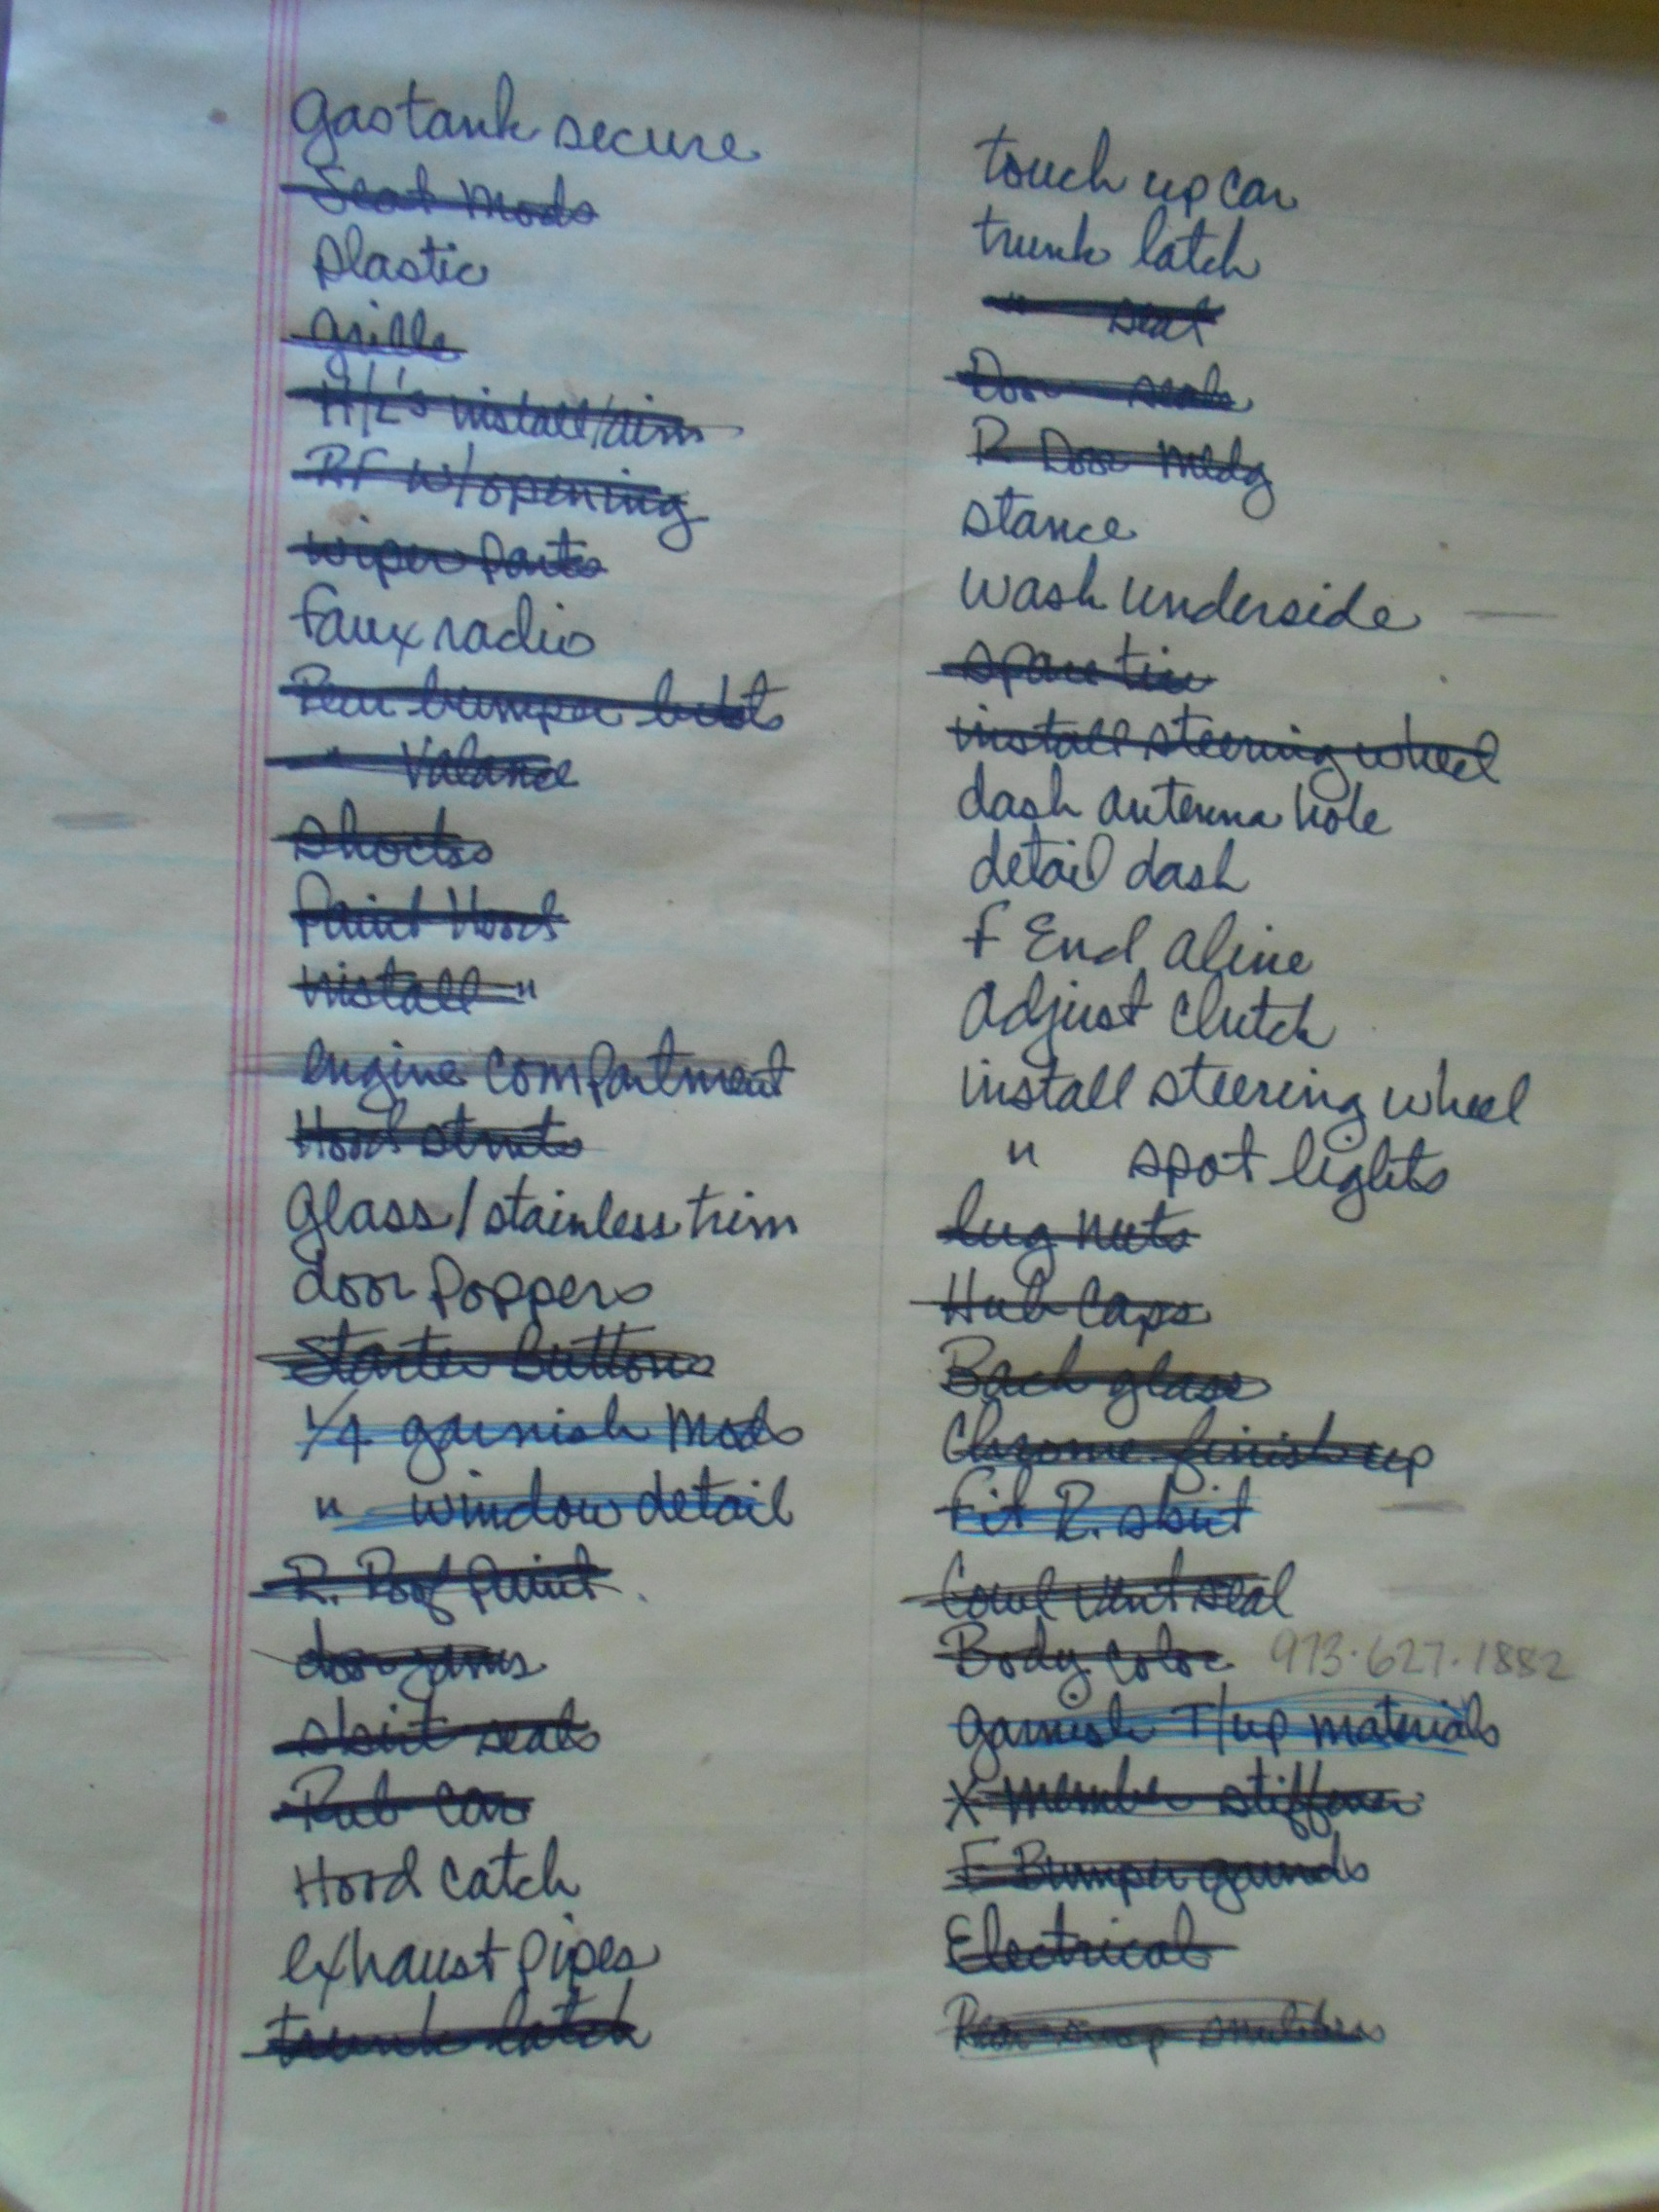 gastank secure
Seat Mods
plastic
grille
H/L's install/aim
RF w/opening
wiper parts
faux radio
Rear bumper bolts
" Valance
shocks
Paint Hood
install "
engine compartment
Hood struts
glass/stainless trim
door poppers
Starter Buttons
1/4 garnish Mods
" window detail
R. Roof paint
door jams
skirt seals
Rub car
Hood catch
exhaust pipes
trunk latch
touch up car
trunk latch
" seal
Door seals
R Door Mldg
stance
wash underside
spare tire
install steering wheel
dash antenna hole
detail dash
F End aline
adjust clutch
install steering wheel
" spot lights
lug nuts
Hub Caps
Back glass
Chrome finish up
fit R. skirt
Cowl vent seal
Body color 973·627·1882
garnish T/up materials
X member stiffener
F Bumper guards
Electrical
Rear